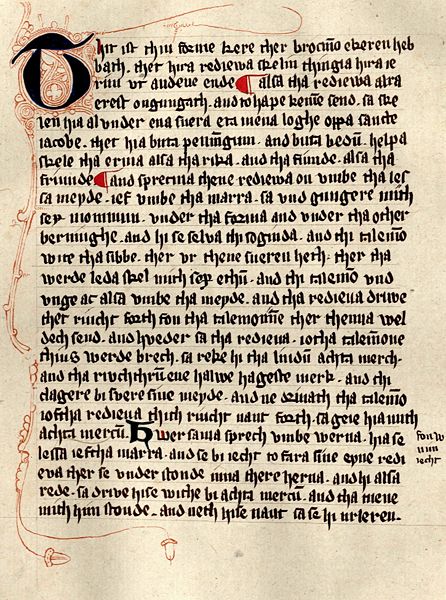 Thit ist thiu forme kere ther brocmen ekeren heb
bath. thet hira rediewa skelin thingia hira ie
rim ut and eue ende alsa tha rediewa alra
erest ongungath. and to hape kemen send. sa ske
len hia al under ena suera eta mena loghe oppa sancte
iacobe. thet hia buta penningum. and buta bedum. helpa
skele tha erma alsa tha rika. and tha fiunde. alsa tha
friunde and sprecma thene rediewa on umbe tha les
sa meyde. ief umbe tha marra. sa und gungere mith
sex monnum. under tha forma and under tha other
bernighe. and hi se selua thi soginda. and thi talemon
wite tha sibbe. ther ur thene sueren heth. ther tha
werde leda skel mith sex ethum. and thi talemon und
unge ac alsa umbe tha meyde. and tha redieua driwe
thet riucht forth fon tha talemonne ther thenna wel
dech send. and hweder sa tha redieua. iotha talemonne
thius werde brech. sa reke hi tha liudum achta merch
and tha riuchthrum ene halwe hageste merk. and thi
clagere bi fuere sine meyde. and ne driuath tha talemon
ioftha redieua thith riucht naut forth. sa geie hia mith
achta mercum. Hwersama sprech umbe werua. hia se
lessa ieftha marra. and se bi iecht to fara sine epne redi
eua ther se under stonde inna there herna. and hi alsa
rede. sa driwe hise withe bi achta mercum. and tha mene
mith him stonde. and neth hise naut sa se hi urleren.